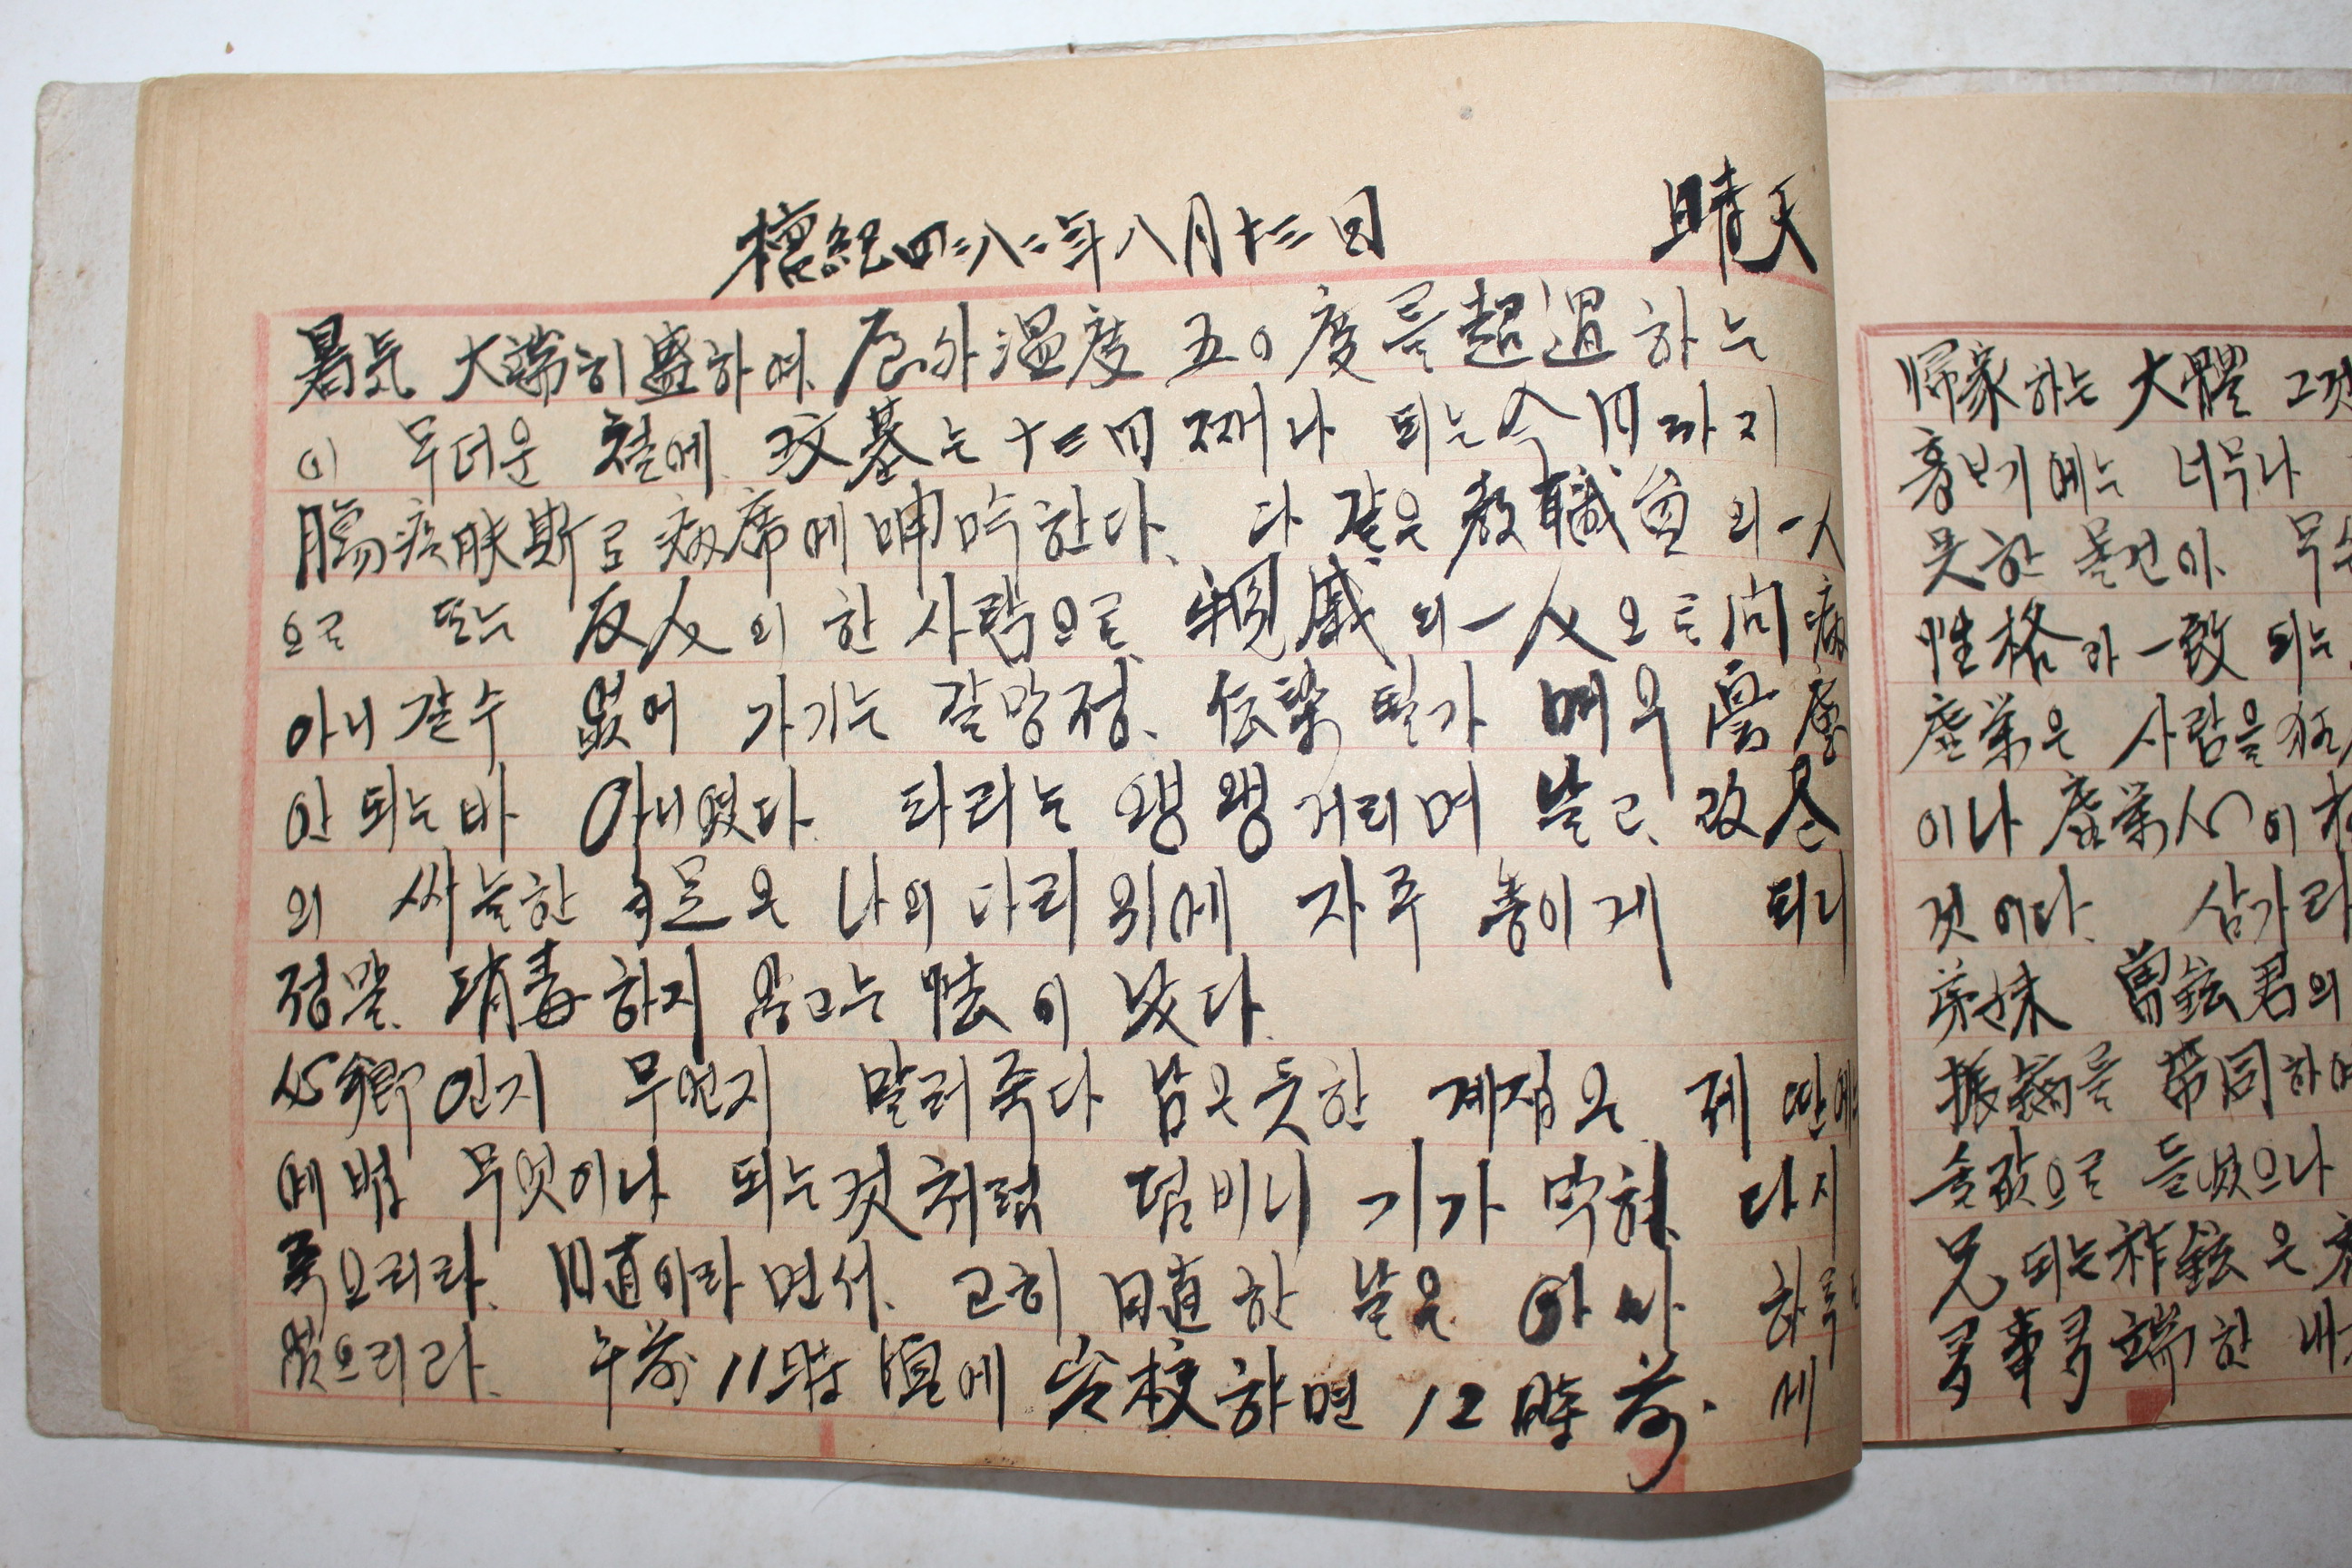 檀紀四二八二年八月十三日 晴天
暑氣 大端히 盛하여. 屋外溫度 五〇度를 超過하는
이 무더운 철에. 玟基는 十三日째나 되는 今日까지
腸疾扶斯로 病席에 呻吟한다. 다 같은 敎職員의 一人
으로 또는 友人의 한 사람으로. 親戚의 一人으로 問病
아니 갈수 없어 가기는 갈망정. 伝染될가 매우 念慮
안 되는바 아니였다. 파리는 왱왱거리며 날고. 玟基
의 싸늘한 手足은 나의 다리 위에 자주 놓이게 되니
정말. 消毒하지 않고는 怯이 났다.
心鄕인지 무언지 말러죽다 남은 듯한 계집은. 제 딴에는
에법 무엇이나 되는것 처럼 덤비니 기가 막혀. 다지
죽으리라. 日直이라면서. 고히 日直한 날은 아마 하루도
없으리라. 午前 11時 頃에 登校하면 12時 前. 에
帰家하는 大體 그것
흉보기에는 너무나
못한 물건이. 무
性格과 一致 되는
虛榮은 사람을
이나 虛榮心이
것이다. 삼가라
弟妹 曾鉉君의
振鎬를 帶同하여
손값으로 들렀으나
兄 되는 祚鉉은
多事多端한 내